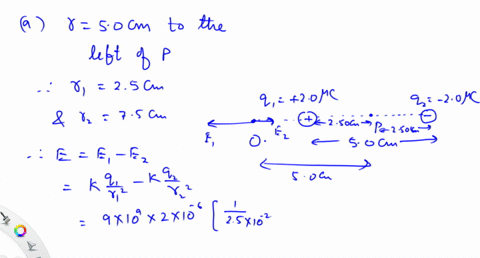 (a) r = 5.0 cm to the
left of P
∴ r₁ = 2.5 cm
& r₂ = 7.5 cm
q₁ = +2.0 μC
q₂ = -2.0 μC
E₁ E₂ + 2.50cm P 2.50cm −
O. 5.0 cm
5.0 cm
∴ E = E₁ − E₂
= K q₁/r₁² − K q₂/r₂²
= 9×10⁹ × 2×10⁻⁶ [ 1/2.5×10⁻²